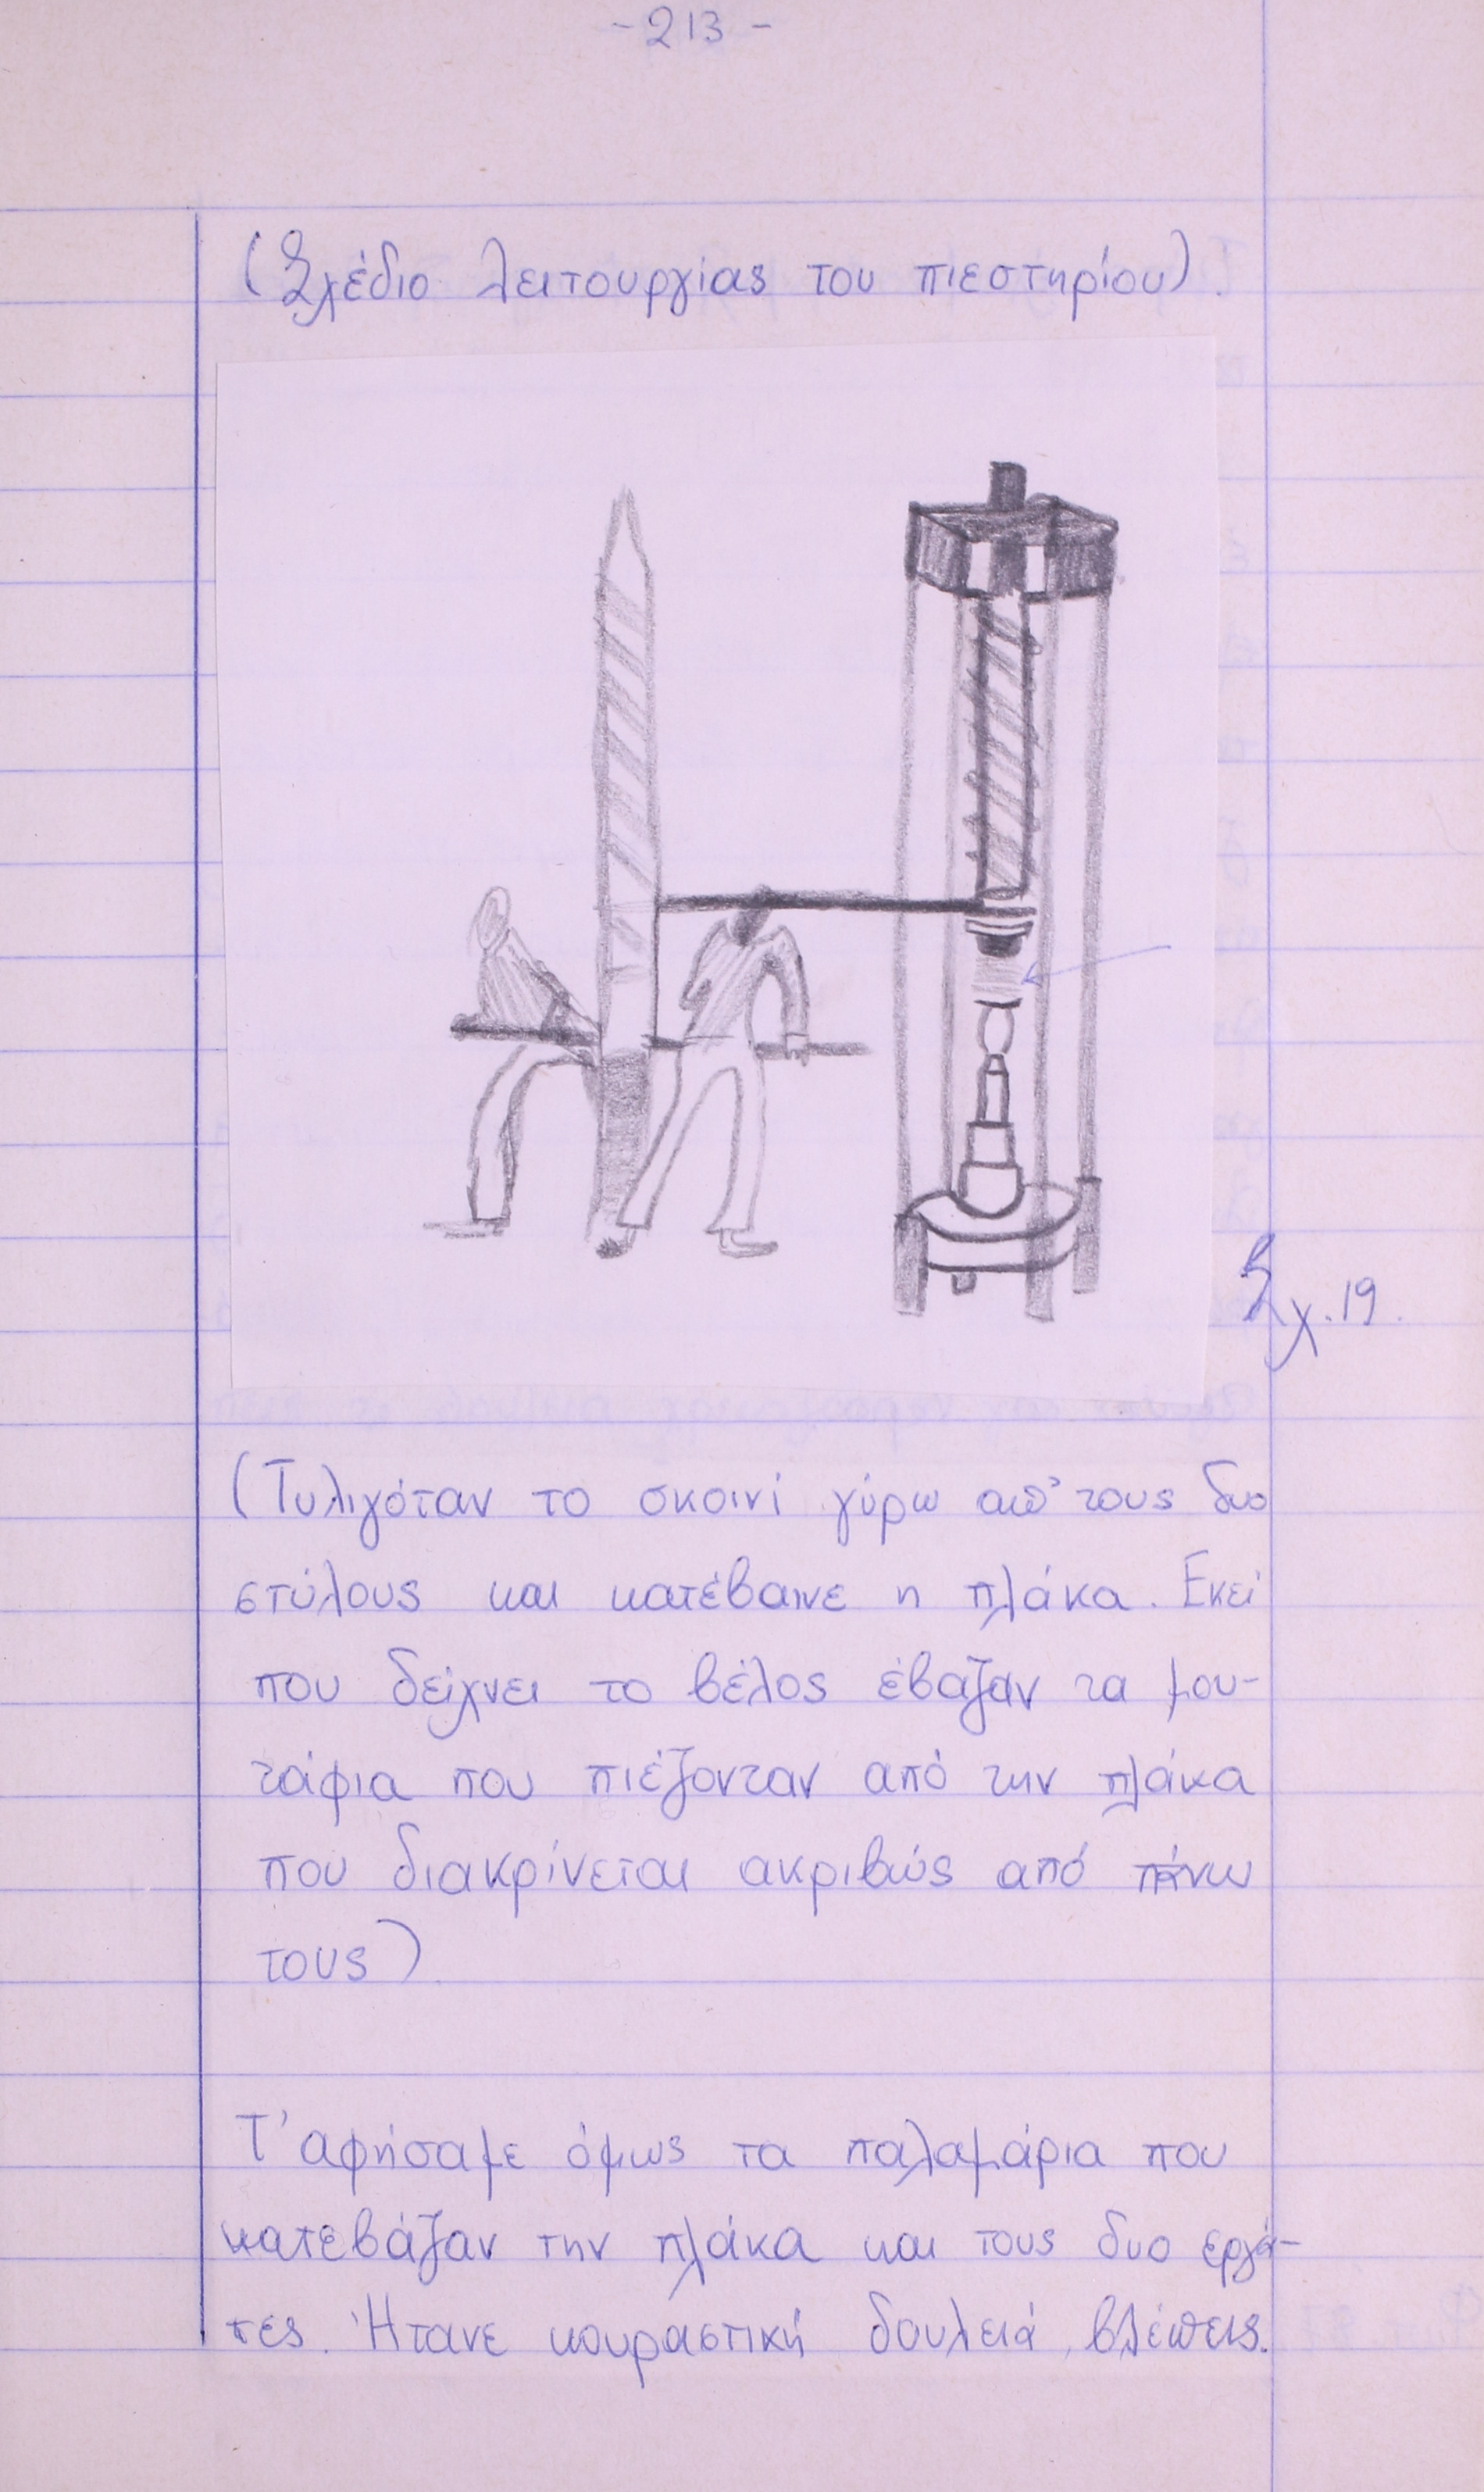 -213-
(Σχέδιο λειτουργίας του πιεστηρίου).
Σχ.19.
(Τυλιγόταν το σκοινί γύρω απ' τους δυο
στύλους και κατέβαινε η πλάκα. Εκεί
που δείχνει το βέλος έβαζαν τα μου-
τάφια που πιέζονταν από την πλάκα
που διακρίνεται ακριβώς από πάνω
τους)
Τ' αφήσαμε όμως τα παλαμάρια που
κατεβάζαν την πλάκα και τους δυο εργά-
τες. Ήτανε κουραστική δουλειά, βλέπεις.